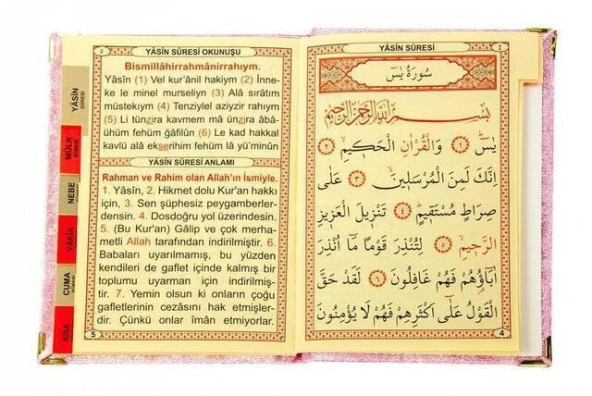 YÂSİN SÛRESİ OKUNUŞU
Bismillâhirrahmânirrahıym.
Yâsîn (1) Vel kur'ânil hakiym (2) İnne-
ke le minel murseliyn (3) Alâ sırâtım
müstekıym (4) Tenziylel aziyzir rahıym
(5) Li tünzira kavmem mâ ünzira âbâ-
ühüm fehüm ğâfilûn (6) Le kad hakkal
kavlü alâ ekserihim fehüm lâ yü'minûn
YÂSİN SÛRESİ ANLAMI
Rahman ve Rahim olan Allah'ın İsmiyle.
1. Yâsîn, 2. Hikmet dolu Kur'an hakkı
için, 3. Sen şüphesiz peygamberler-
densin. 4. Dosdoğru yol üzerindesin.
5. (Bu Kur'an) Gâlip ve çok merha-
metli Allah tarafından indirilmiştir. 6.
Babaları uyarılmamış, bu yüzden
kendileri de gaflet içinde kalmış bir
toplumu uyarman için indirilmiş-
tir. 7. Yemin olsun ki onların çoğu
gafletlerinin cezasını hak etmişler-
dir. Çünkü onlar îmân etmiyorlar.
5
YÂSİN
MÜLK
NEBE
VAKIA
CUMA
KISA
YÂSİN SÛRESİ
٤
سُورَةُ يٰسٓ
بِسْمِ اللّٰهِ الرَّحْمٰنِ الرَّحِيمِ
يٰسٓ ﴿١﴾ وَالْقُرْاٰنِ الْحَكِيمِ ﴿٢﴾
اِنَّكَ لَمِنَ الْمُرْسَلِينَ ﴿٣﴾ عَلٰى
صِرَاطٍ مُسْتَقِيمٍ ﴿٤﴾ تَنْزِيلَ الْعَزِيزِ
الرَّحِيمِ ﴿٥﴾ لِتُنْذِرَ قَوْمًا مَٓا اُنْذِرَ
اٰبَٓاؤُهُمْ فَهُمْ غَافِلُونَ ﴿٦﴾ لَقَدْ حَقَّ
الْقَوْلُ عَلٰٓى اَكْثَرِهِمْ فَهُمْ لَا يُؤْمِنُونَ
4